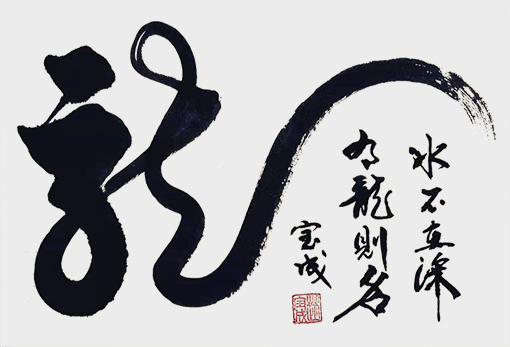 龍
水不在深
有龍則名
宝成